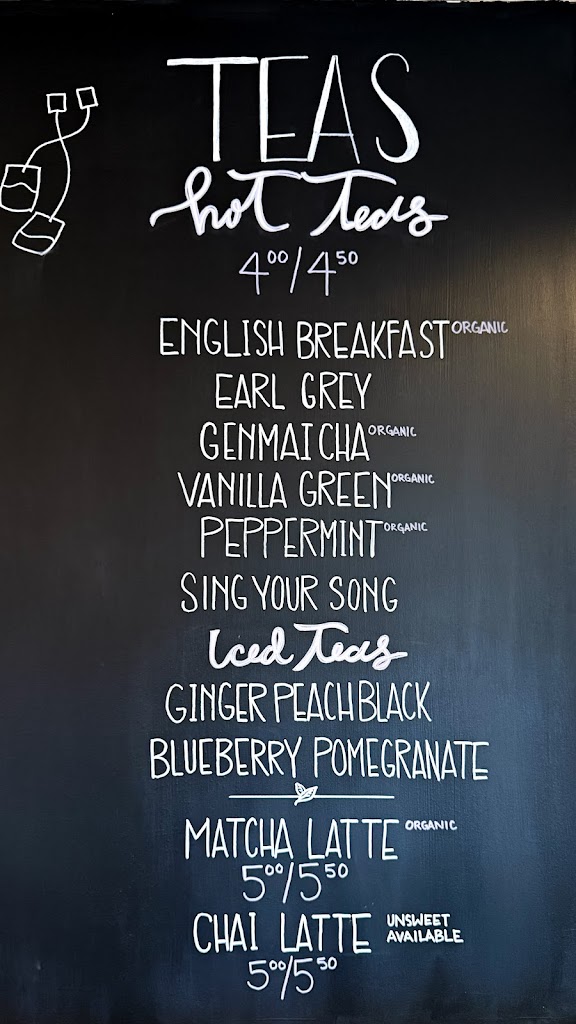 TEAS
hot Teas
4⁰⁰/4⁵⁰
ENGLISH BREAKFAST ORGANIC
EARL GREY
GENMAICHA ORGANIC
VANILLA GREEN ORGANIC
PEPPERMINT ORGANIC
SING YOUR SONG
Iced Teas
GINGER PEACH BLACK
BLUEBERRY POMEGRANATE
MATCHA LATTE ORGANIC
5⁰⁰/5⁵⁰
CHAI LATTE UNSWEET AVAILABLE
5⁰⁰/5⁵⁰